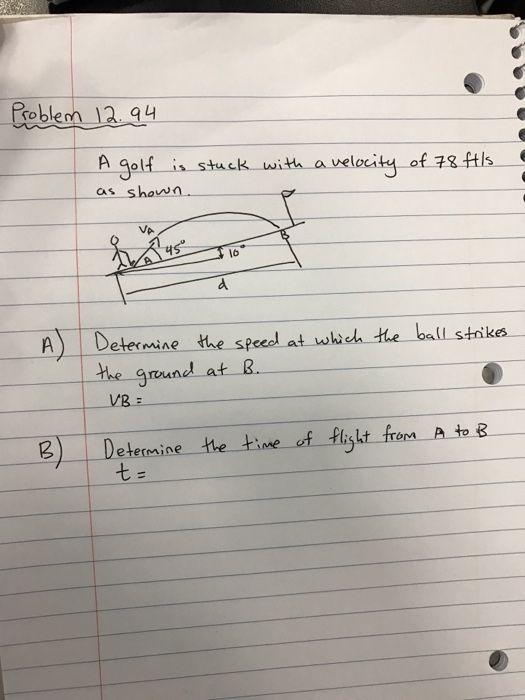 Problem 12.94
A golf is stuck with a velocity of 78 ft/s
as shown.
VA
45°
A
10°
B
d
A) Determine the speed at which the ball strikes
the ground at B.
VB =
B) Determine the time of flight from A to B
t =